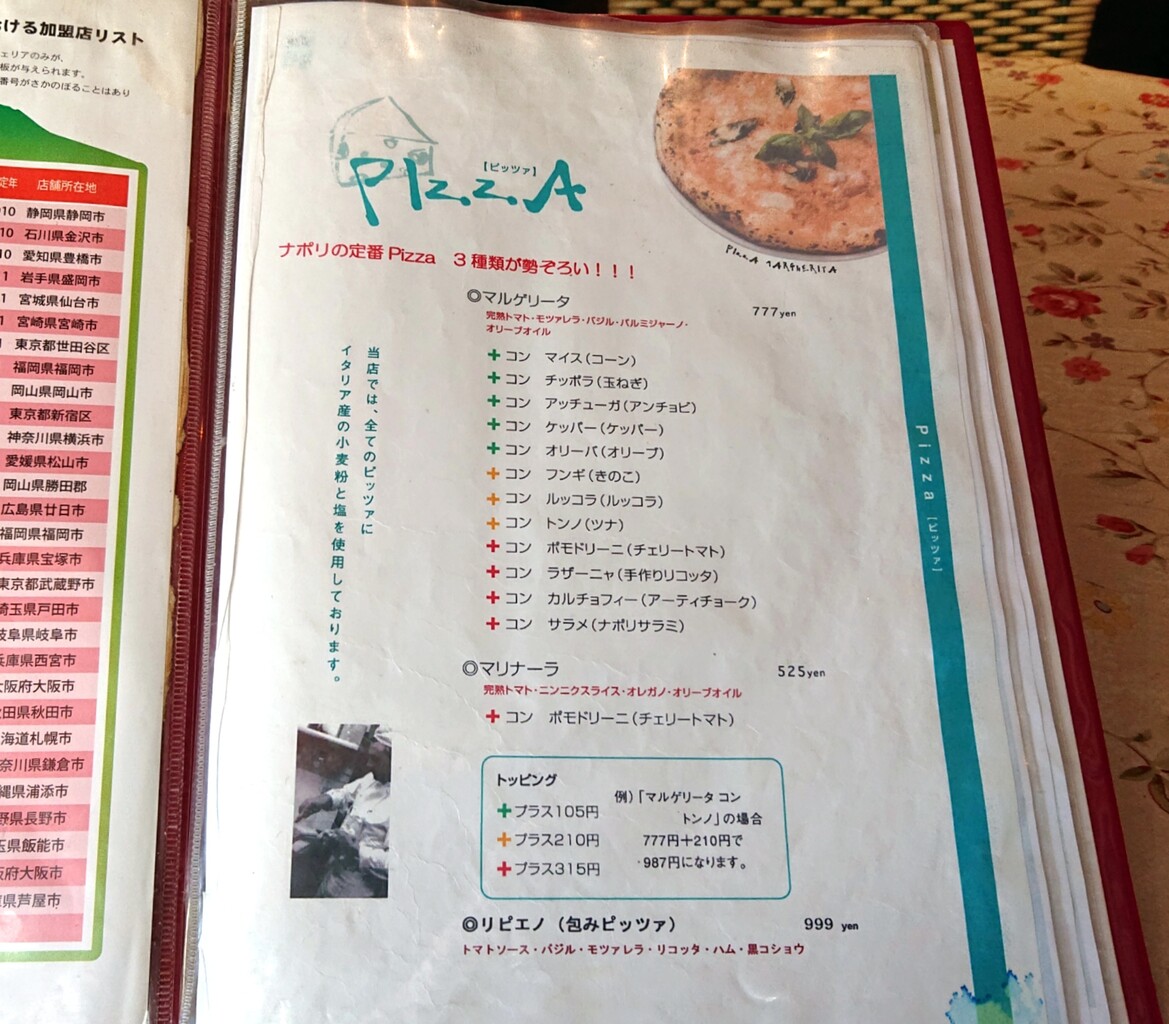 ける加盟店リスト
ェリアのみが、
板が与えられます。
番号がさかのぼることはあり
定年 店舗所在地
010 静岡県静岡市
10 石川県金沢市
10 愛知県豊橋市
1 岩手県盛岡市
1 宮城県仙台市
1 宮崎県宮崎市
東京都世田谷区
福岡県福岡市
岡山県岡山市
東京都新宿区
神奈川県横浜市
愛媛県松山市
岡山県勝田郡
広島県廿日市
福岡県福岡市
兵庫県宝塚市
東京都武蔵野市
埼玉県戸田市
岐阜県岐阜市
兵庫県西宮市
大阪府大阪市
秋田県秋田市
海道札幌市
奈川県鎌倉市
縄県浦添市
野県長野市
玉県飯能市
阪府大阪市
県芦屋市
PIzzA
【ピッツァ】
PIzzA MARGHERITA
ナポリの定番Pizza 3種類が勢ぞろい!!!
◎マルゲリータ 777yen
完熟トマト・モツァレラ・バジル・パルミジャーノ・
オリーブオイル
+コン マイス(コーン)
+コン チッポラ(玉ねぎ)
+コン アッチューガ(アンチョビ)
+コン ケッパー(ケッパー)
+コン オリーバ(オリーブ)
+コン フンギ(きのこ)
+コン ルッコラ(ルッコラ)
+コン トンノ(ツナ)
+コン ポモドリーニ(チェリートマト)
+コン ラザーニャ(手作りリコッタ)
+コン カルチョフィー(アーティチョーク)
+コン サラメ(ナポリサラミ)
当店では、全てのピッツァに
イタリア産の小麦粉と塩を使用しております。
◎マリナーラ 525yen
完熟トマト・ニンニクスライス・オレガノ・オリーブオイル
+コン ポモドリーニ(チェリートマト)
トッピング
+プラス105円
+プラス210円
+プラス315円
例)「マルゲリータ コン
トンノ」の場合
777円+210円で
987円になります。
◎リピエノ(包みピッツァ) 999 yen
トマトソース・バジル・モツァレラ・リコッタ・ハム・黒コショウ
Pizza【ピッツァ】